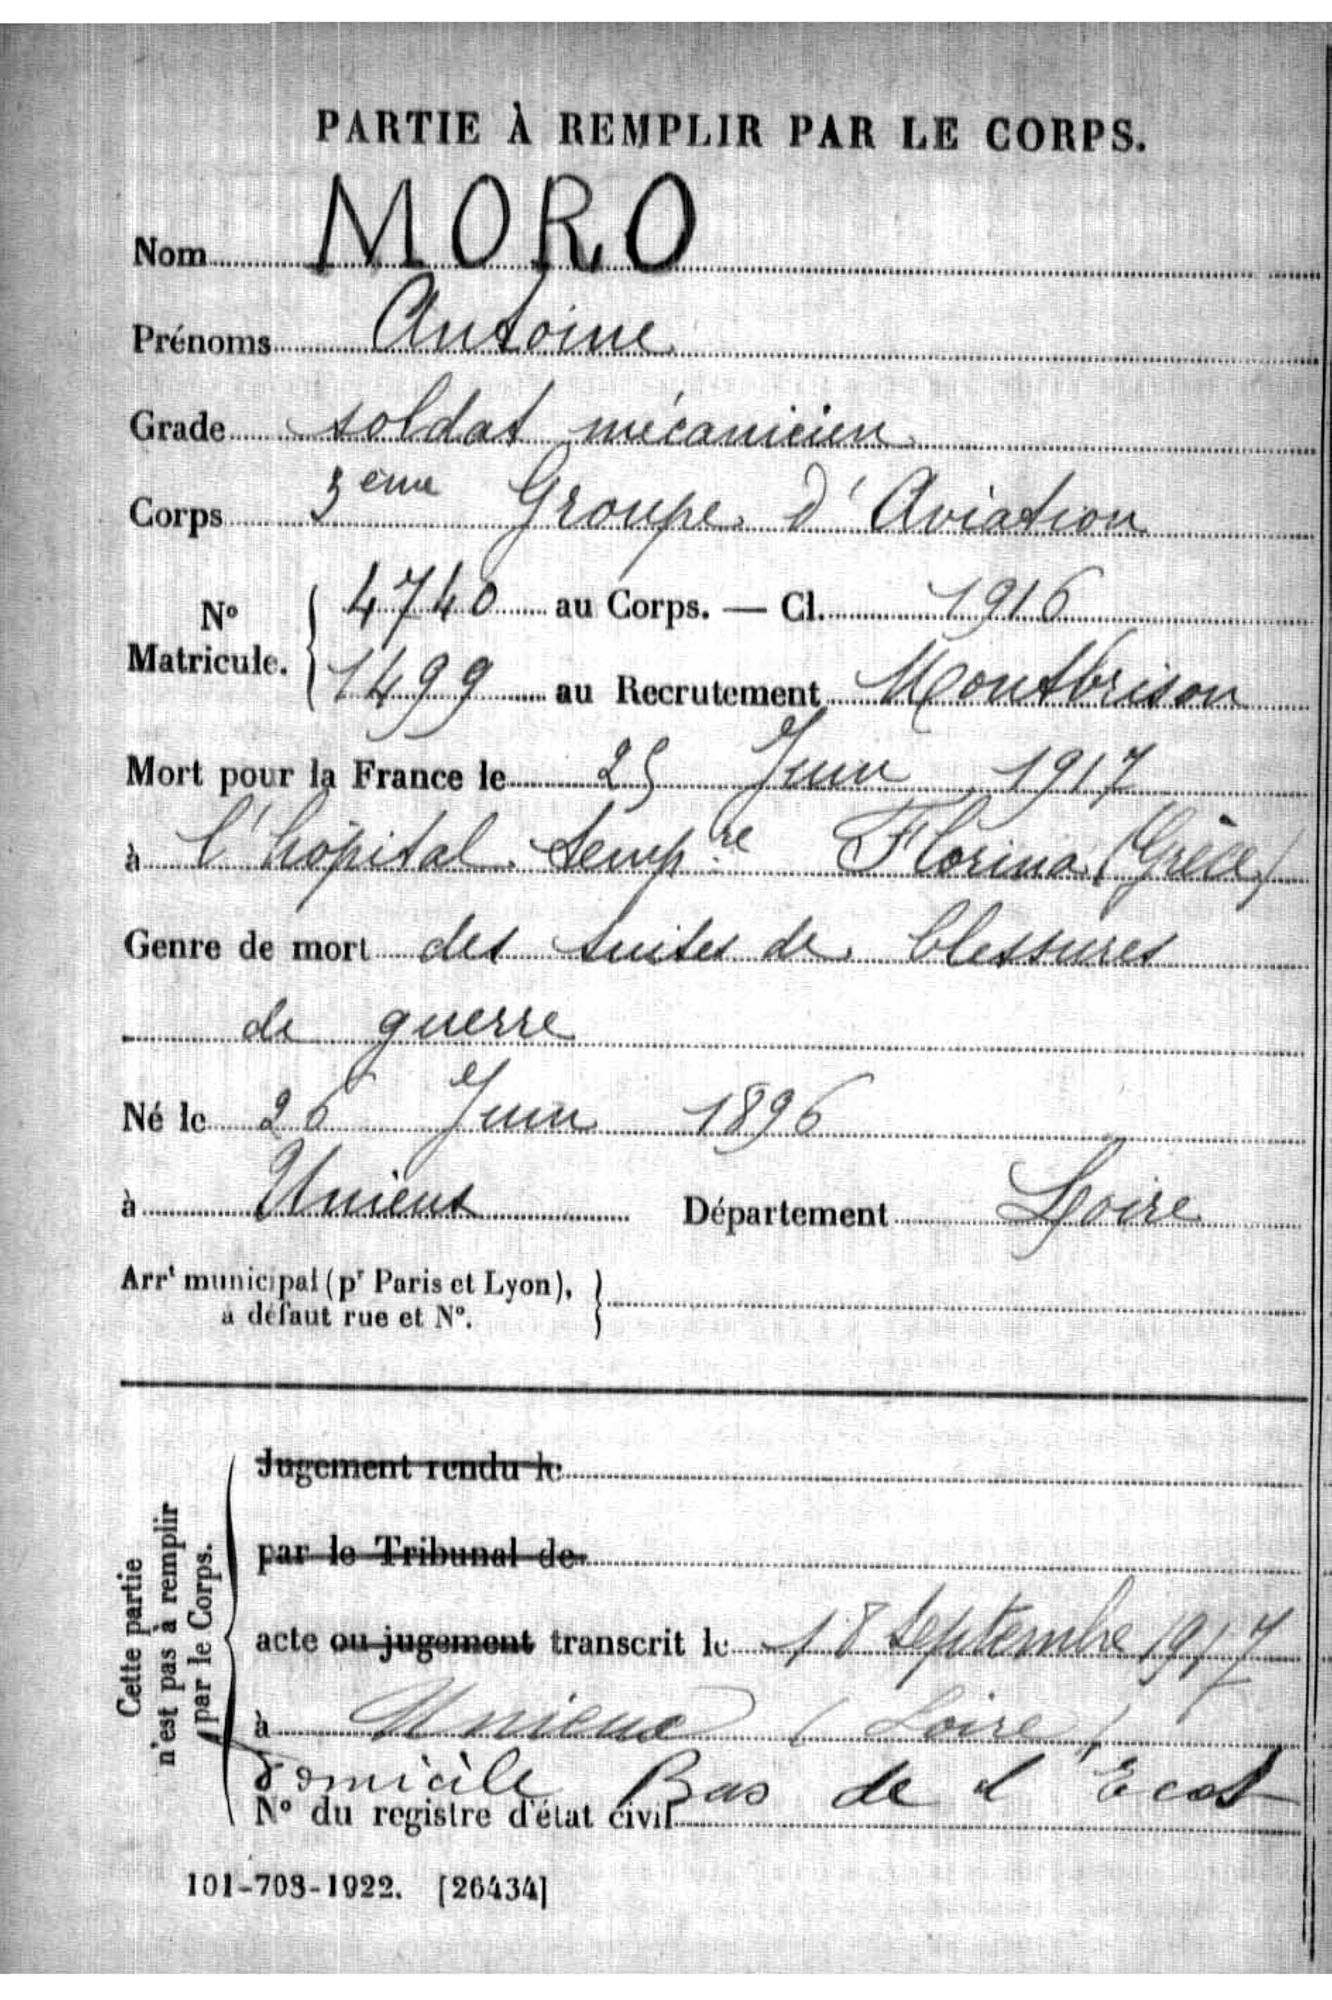 PARTIE À REMPLIR PAR LE CORPS.
Nom MORO
Prénoms Antoine
Grade soldat mécanicien
Corps 3ème Groupe d'Aviation
N° Matricule. 4740 au Corps. — Cl. 1916
1499 au Recrutement Montbrison
Mort pour la France le 25 Juin 1917
à l'hôpital temp.re Florina (Grèce)
Genre de mort des suites de blessures
de guerre
Né le 26 Juin 1896
à Unieux Département Loire
Arrt municipal (pr Paris et Lyon),
à défaut rue et N°.
Cette partie
n'est pas à remplir
par le Corps.
Jugement rendu le
par le Tribunal de
acte ou jugement transcrit le 18 Septembre 1917
à Unieux (Loire)
domicile Bas de l'Ecot
N° du registre d'état civil
101-708-1922. [26434]